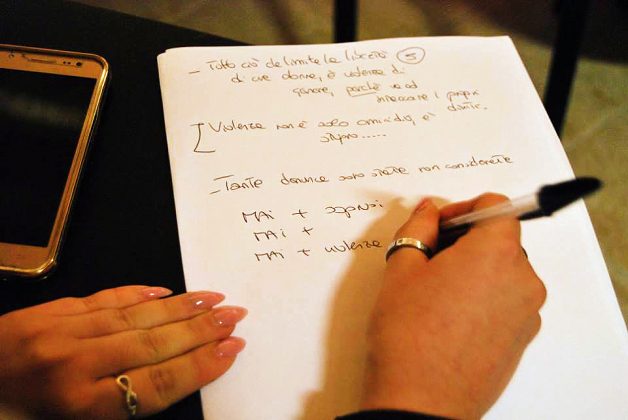 - Tutto ciò che limita la libertà 5
di una donna, è violenza di
genere, perchè va ad
intaccare i propri
diritti.
Violenza non è solo omicidio, è
stupro.....
- Tante denunce sono state non considerate
MAI +
MAI +
MAI + violenza